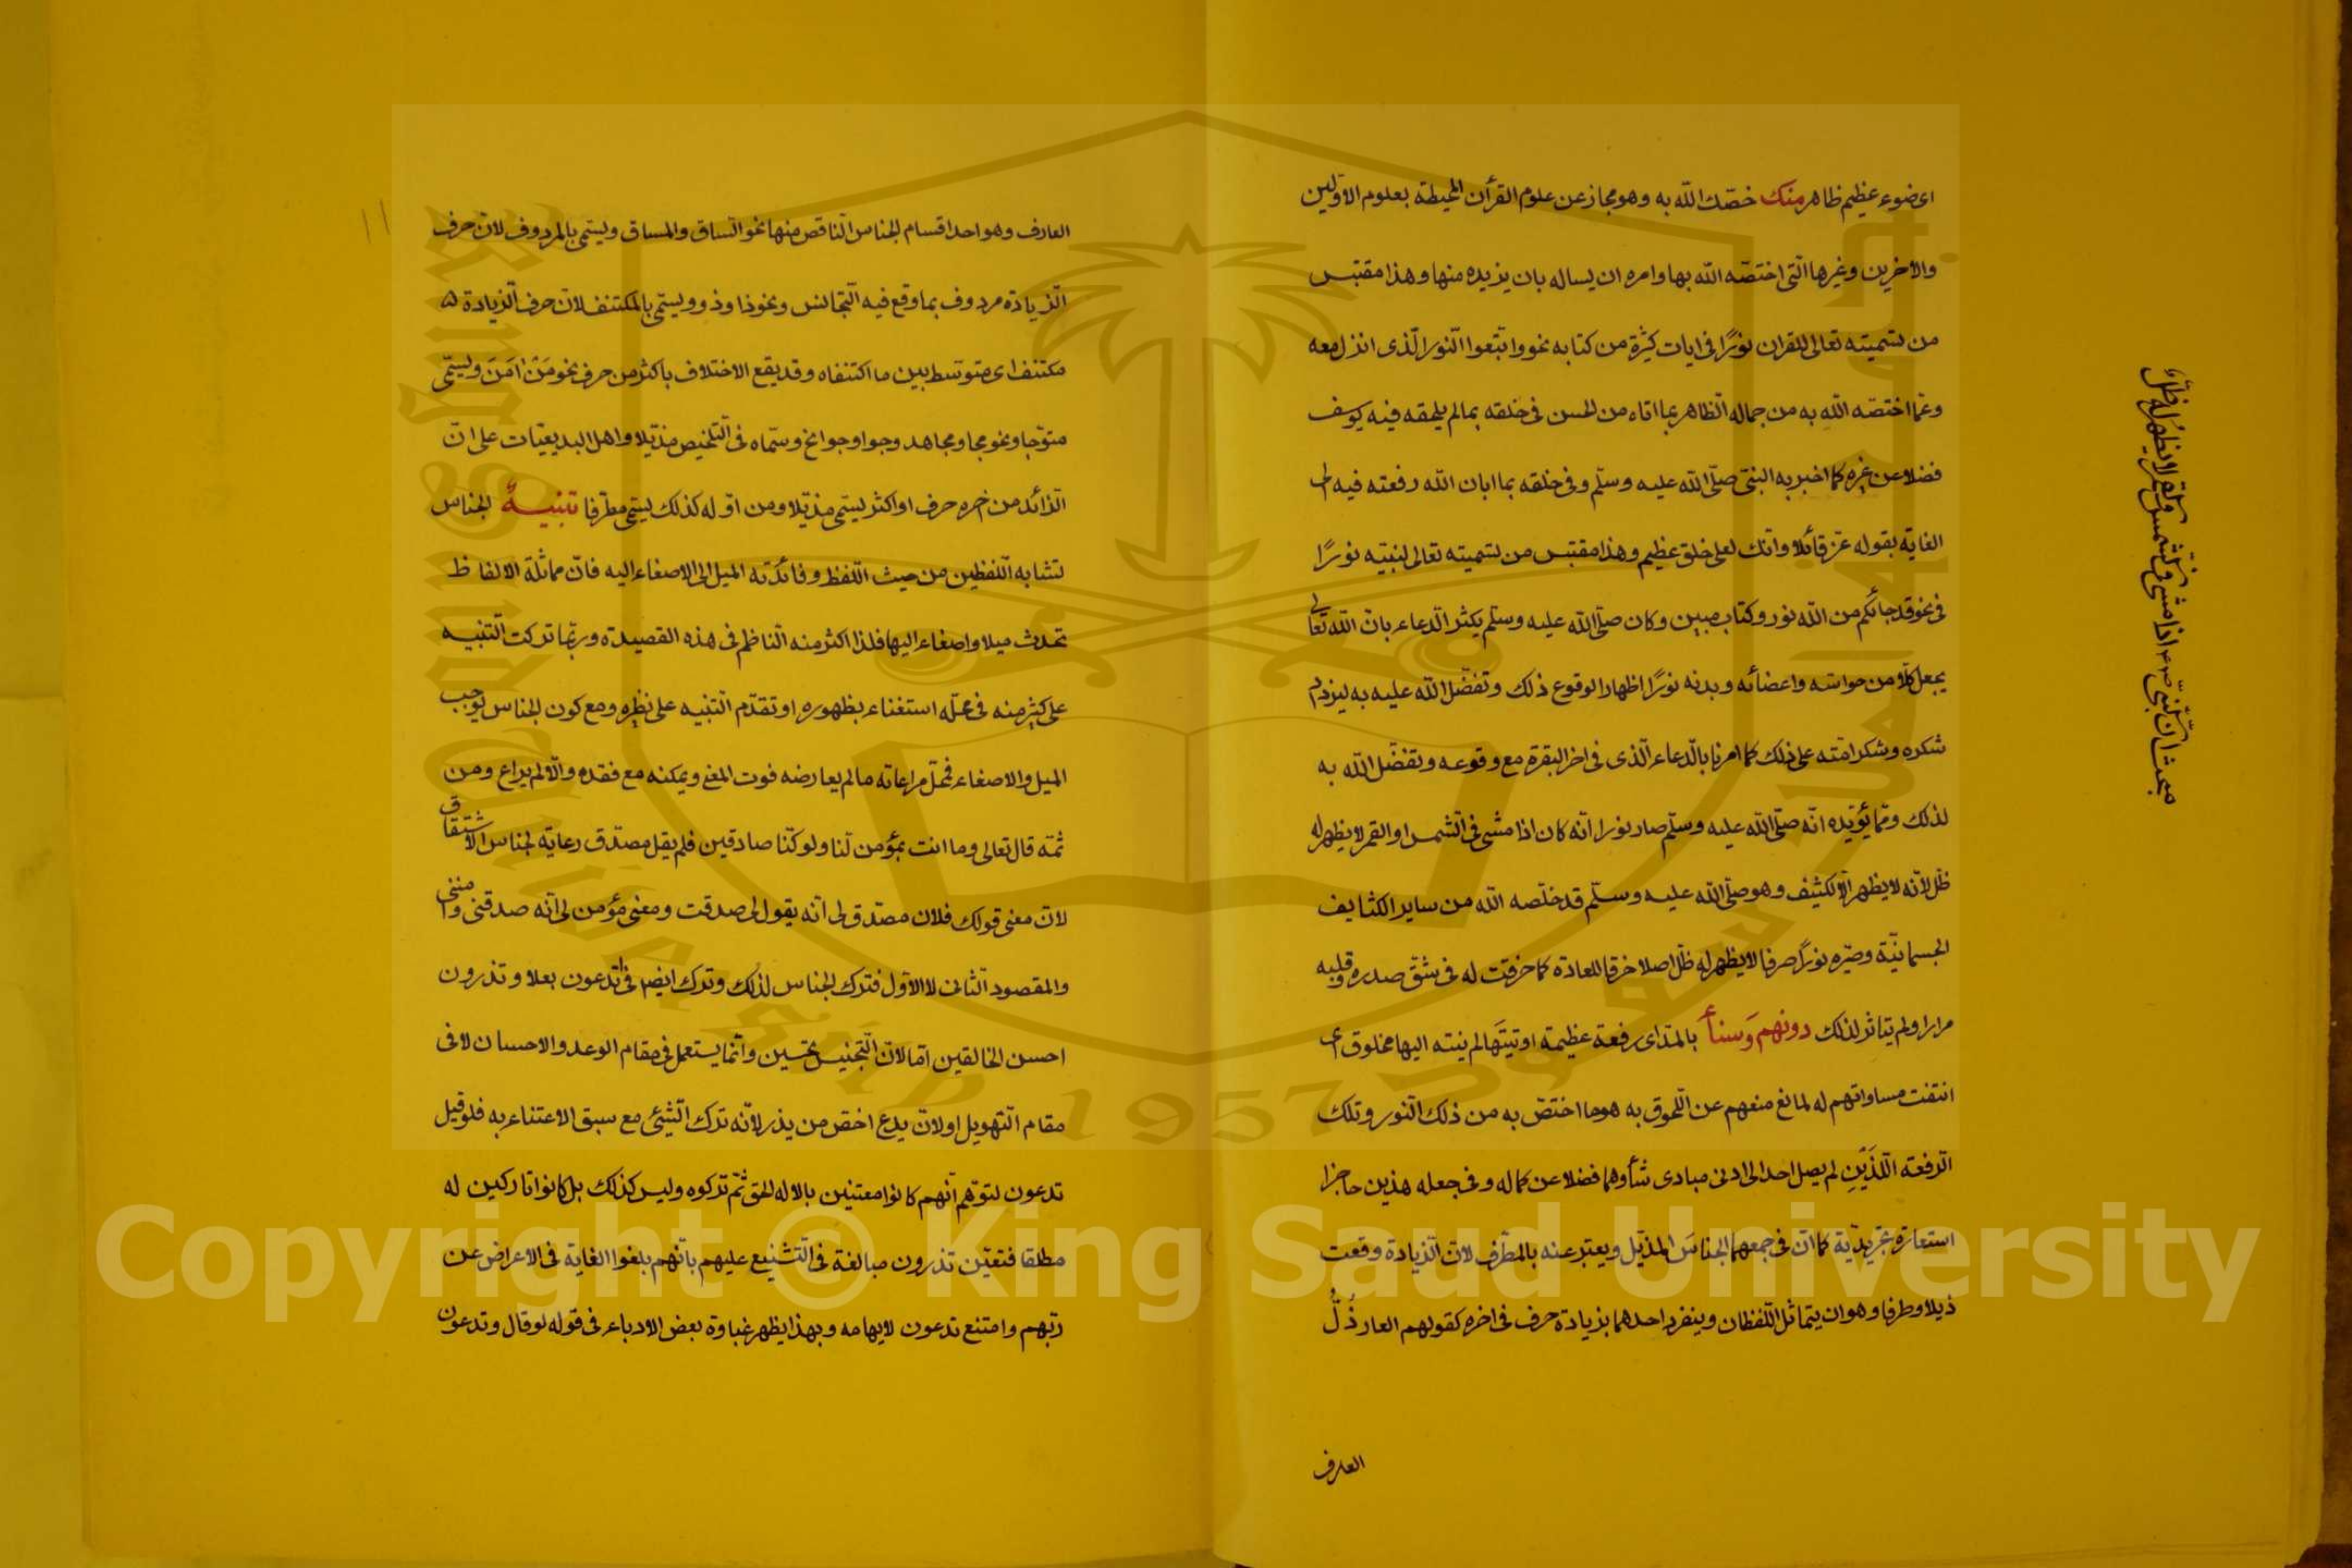 اى ضوء عظيم ظاهر منك خصّك اللّه به وهو مجاز عن علوم القرأن المحيطة بعلوم الاوّلين
والاخرين وغيرها الّتى اختصّه اللّه بها وامره ان يساله بان يزيده منها وهذا مقتبس
من تسميته تعالى للقران نورًا فى ايات كثيرة من كتابه نحو واتّبعوا النّور الّذى انزل معه
وعمّا اختصّه اللّه به من جماله الظّاهر بما اتاه من الحسن فى خلقه بما لم يلحقه فيه يوسف
فضلا عن غيره كما اخبر به النبىّ صلّى اللّه عليه وسلّم وفى خلقه بما ابان اللّه رفعته فيه الى
الغاية بقوله عزّ قائلا وانّك لعلى خلق عظيم وهذا مقتبس من تسميته تعالى لنبيّه نورًا
فى نحو قد جائكم من اللّه نور وكتاب مبين وكان صلّى اللّه عليه وسلّم يكثر الدّعاء بانّ اللّه تعالى
يجعل كلّا من حواسّه واعضائه وبدنه نورًا اظهارا لوقوع ذلك وتفضّل اللّه عليه به ليزداد
شكره وشكر امّته على ذلك كما امرنا بالدّعاء الّذى فى اخر البقرة مع وقوعه وتفضّل اللّه به
لذلك وممّا يؤيّده انّه صلّى اللّه عليه وسلّم صار نورا انّه كان اذا مشى فى الشّمس او القمر لا يظهر له
ظلّ لانّه لا يظهر الّا لكثيف وهو صلّى اللّه عليه وسلّم قد خلّصه اللّه من ساير الكثايف
الجسمانيّة وصيّره نورًا صرفا لا يظهر له ظلّ اصلا خرقا للعادة كما خرقت له فى شقّ صدره وقلبه
مرارا ولم يتاثّر لذلك دونهم وَسنأ بالمدّ اى رفعة عظيمة اوتيتَها لم ينته اليها مخلوق اى
انتفت مساواتهم له لمانع منعهم عن اللّحوق به هو ما اختصّ به من ذلك النّور وتلك
الرّفعة اللّذَيْنِ لم يصل احد الى ادنى مبادى شأوهما فضلا عن كماله وفى جعله هذين حاجزا
استعارة تجريديّة كما انّ فى جمعهما الجناسَ المذيّل ويعبّر عنه بالمطرّف لانّ الزّيادة وقعت
ذيلا وطرفا وهو ان يتماثل اللّفظان وينفرد احدهما بزيادة حرف فى اخره كقولهم العار ذُلُّ
العارف
مبحث انّ النّبىّ صم اذا مشى فى شّمس وقمر لا يظهر له ظلّ
١١
العارف وهو احد اقسام الجناس النّاقص منها نحو السّاق والمساق ويسمّى بالمردوف لانّ حرف
الزّيادة مردوف بما وقع فيه التّجانس ونحو ذا وذوو ويسمّى بالمكتنف لانّ حرف الزّيادة
مكتنف اى متوسّط بين ما اكتنفاه وقد يقع الاختلاف باكثر من حرف نحو مَن امَنَ ويسمّى
متوّجا ونحو مجا ومجاهد وجوا وجوانح وسمّاه فى التّلخيص مذيّلا واهل البديعيّات على انّ
الزّائد من اخره حرف او اكثر يسمّى مذيّلا ومن اوّله كذلك يسمّى مطرّفا تنبيهٌ الجناس
تشابه اللّفظين من حيث اللّفظ وفائدته الميل الى الاصغاء اليه فانّ مماثلة الالفاظ
تحدث ميلا واصغاء اليها فلذا اكثر منه النّاظم فى هذه القصيدة وربّما تركت التّنبيه
على كثير منه فى محلّه استغناء بظهوره او تقدّم التنبيه على نظيره ومع كون الجناس يوجب
الميل والاصغاء فمحلّ مراعاته ما لم يعارضه فوت المعنى ويمكنه مع فقده والّا لم يراع ومن
ثمّه قال تعالى وما انت بمؤمن لنا ولو كنّا صادقين فلم يقل مصدّق رعاية لجناس الاشتقاق
لانّ معنى قولك فلان مصدّق لى انّه يقول لى صدقت ومعنى مؤمن لى انّه صدقنى وامننى
والمقصود الثّانى لا الاوّل فترك الجناس لذلك وترك ايضا فى اتدعون بعلا وتذرون
احسن الخالقين امّا لانّ التّجنيس تحسين وانّما يستعمل فى مقام الوعد والاحسان لا فى
مقام التّهويل او لانّ يدع اخصّ من يذر لانّه ترك الشّيئ مع سبق الاعتناء به فلو قيل
تدعون لتوهّم انّهم كانوا معتنين بالاله الحق ثمّ تركوه وليس كذلك بل كانوا تاركين له
مطلقا فتعيّن تذرون مبالغة فى التّشنيع عليهم بانّهم بلغوا الغاية فى الاعراض عن
ربّهم وامتنع تدعون لايهامه وبهذا يظهر غباوة بعض الادباء فى قوله لو قال وتدعون
Copyright © King Saud University
King Saud University
جامعة الملك سعود
1957